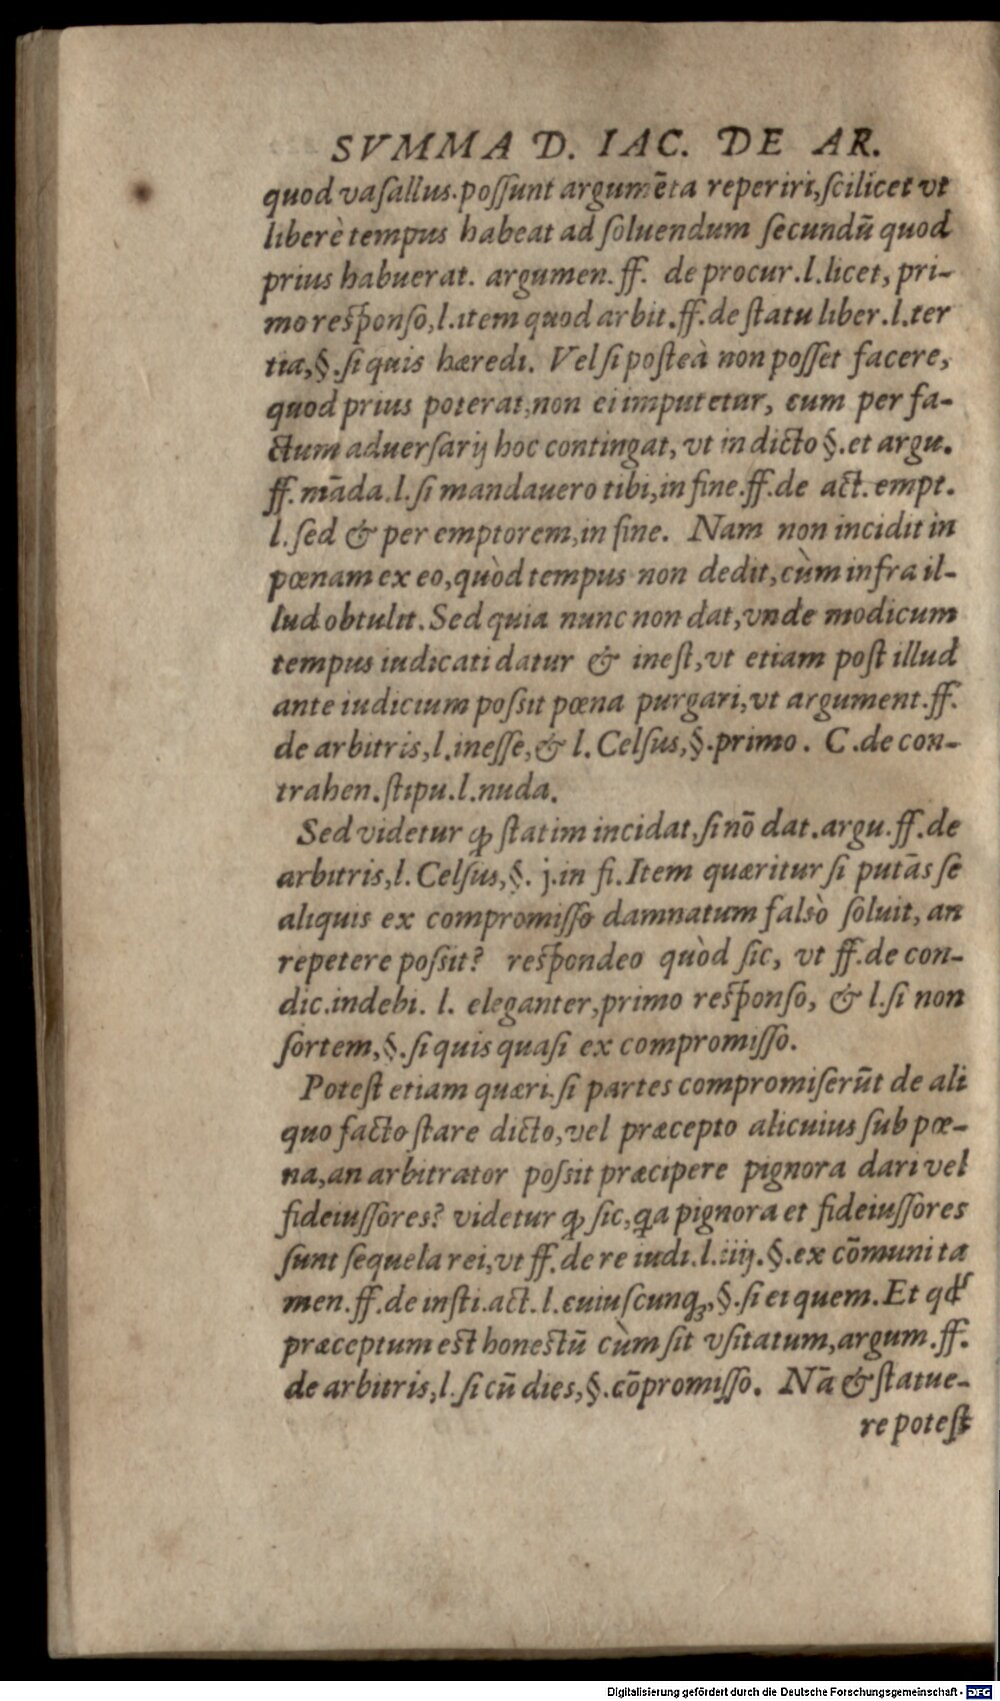 SVMMA D. IAC. DE AR.
quod vasallus. possunt argumēta reperiri, scilicet vt
liberè tempus habeat ad soluendum secundū quod
prius habuerat. argumen. ff. de procur. l. licet, pri-
mo responso, l. item quod arbit. ff. de statu liber. l. ter
tia, §. si quis hæredi. Vel si posteà non posset facere,
quod prius poterat, non ei imputetur, cum per fa-
ctum aduersarij hoc contingat, vt in dicto §. et argu.
ff. māda. l. si mandauero tibi, in fine. ff. de act. empt.
l. sed & per emptorem, in fine. Nam non incidit in
pœnam ex eo, quòd tempus non dedit, cùm infra il-
lud obtulit. Sed quia nunc non dat, vnde modicum
tempus iudicati datur & inest, vt etiam post illud
ante iudicium possit pœna purgari, vt argument. ff.
de arbitris, l. inesse, & l. Celsus, §. primo. C. de con-
trahen. stipu. l. nuda.
Sed videtur ꝙ statim incidat, si nō dat. argu. ff. de
arbitris, l. Celsus, §. j. in fi. Item quæritur si putās se
aliquis ex compromisso damnatum falsò soluit, an
repetere possit? respondeo quòd sic, vt ff. de con-
dic. indebi. l. eleganter, primo responso, & l. si non
sortem, §. si quis quasi ex compromisso.
Potest etiam quæri. si partes compromiserūt de ali
quo facto stare dicto, vel præcepto alicuius sub pœ-
na, an arbitrator possit præcipere pignora dari vel
fideiussores? videtur ꝙ sic, qa pignora et fideiussores
sunt sequela rei, vt ff. de re iudi. l. iiij. §. ex cōmuni ta
men. ff. de insti. act. l. cuiuscunqꝫ, §. si ei quem. Et qđ
præceptum est honestū cùm sit vsitatum, argum. ff.
de arbitris, l. si cū dies, §. cōpromisso. Nā & statue-
re potest
Digitalisierung gefördert durch die Deutsche Forschungsgemeinschaft - DFG